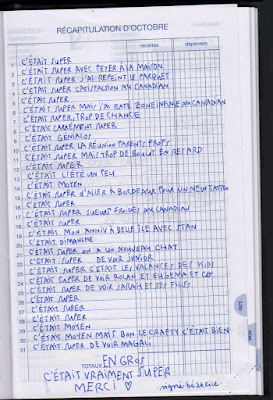 RÉCAPITULATION D'OCTOBRE
recettes dépenses
1 C'ÉTAIT SUPER
2 C'ÉTAIT SUPER AVEC PETER À LA MAISON
3 C'ÉTAIT SUPER J'AI REPEINT LE PARQUET
4 C'ÉTAIT SUPER SATISFACTION AU CANADIAN
5 C'ÉTAIT SUPER
6 C'ÉTAIT SUPER MAIS J'AI RATÉ ZONE INFINIE AU CANADIAN
7 C'ÉTAIT SUPER, TROP DE CHANCE
8 C'ÉTAIT CARRÉMENT SUPER
9 C'ÉTAIT GÉNIAL
10 C'ÉTAIT SUPER LA RÉUNION PARENTS PROFS
11 C'ÉTAIT SUPER MAIS TROP DE BOULOT EN RETARD
12 C'ÉTAIT SUPER
13 C'ÉTAIT L'ÉTÉ UN PEU
14 C'ÉTAIT MOYEN
15 C'ÉTAIT SUPER D'ALLER À BORDEAUX POUR UN NEW TATTOO
16 C'ÉTAIT SUPER
17 C'ÉTAIT SUPER SUEURS FROIDES AU CANADIAN
18 C'ÉTAIT SUPER
19 C'ÉTAIT MON ANNIV À BELLE ÎLE AVEC STAN
20 C'ÉTAIT DIMANCHE
21 C'ÉTAIT SUPER ON A UN NOUVEAU CHAT
22 C'ÉTAIT SUPER DE VOIR JUNIOR
23 C'ÉTAIT SUPER C'ÉTAIT LES VACANCES DES KIDS
24 C'ÉTAIT SUPER DE VOIR ROLAN ET EUGENIA ET CO
25 C'ÉTAIT SUPER DE VOIR SARAH ET SES FILLES
26 C'ÉTAIT SUPER
27 C'ÉTAIT SUPER
28 C'ÉTAIT SUPER
29 C'ÉTAIT MOYEN
30 C'ÉTAIT MOYEN MAIS BON LE CRAFTY C'ÉTAIT BIEN
31 C'ÉTAIT SUPER DE VOIR MAGALI
TOTAUX EN GROS
C'ÉTAIT VRAIMENT SUPER
MERCI ♡ signé béatrice
OCT